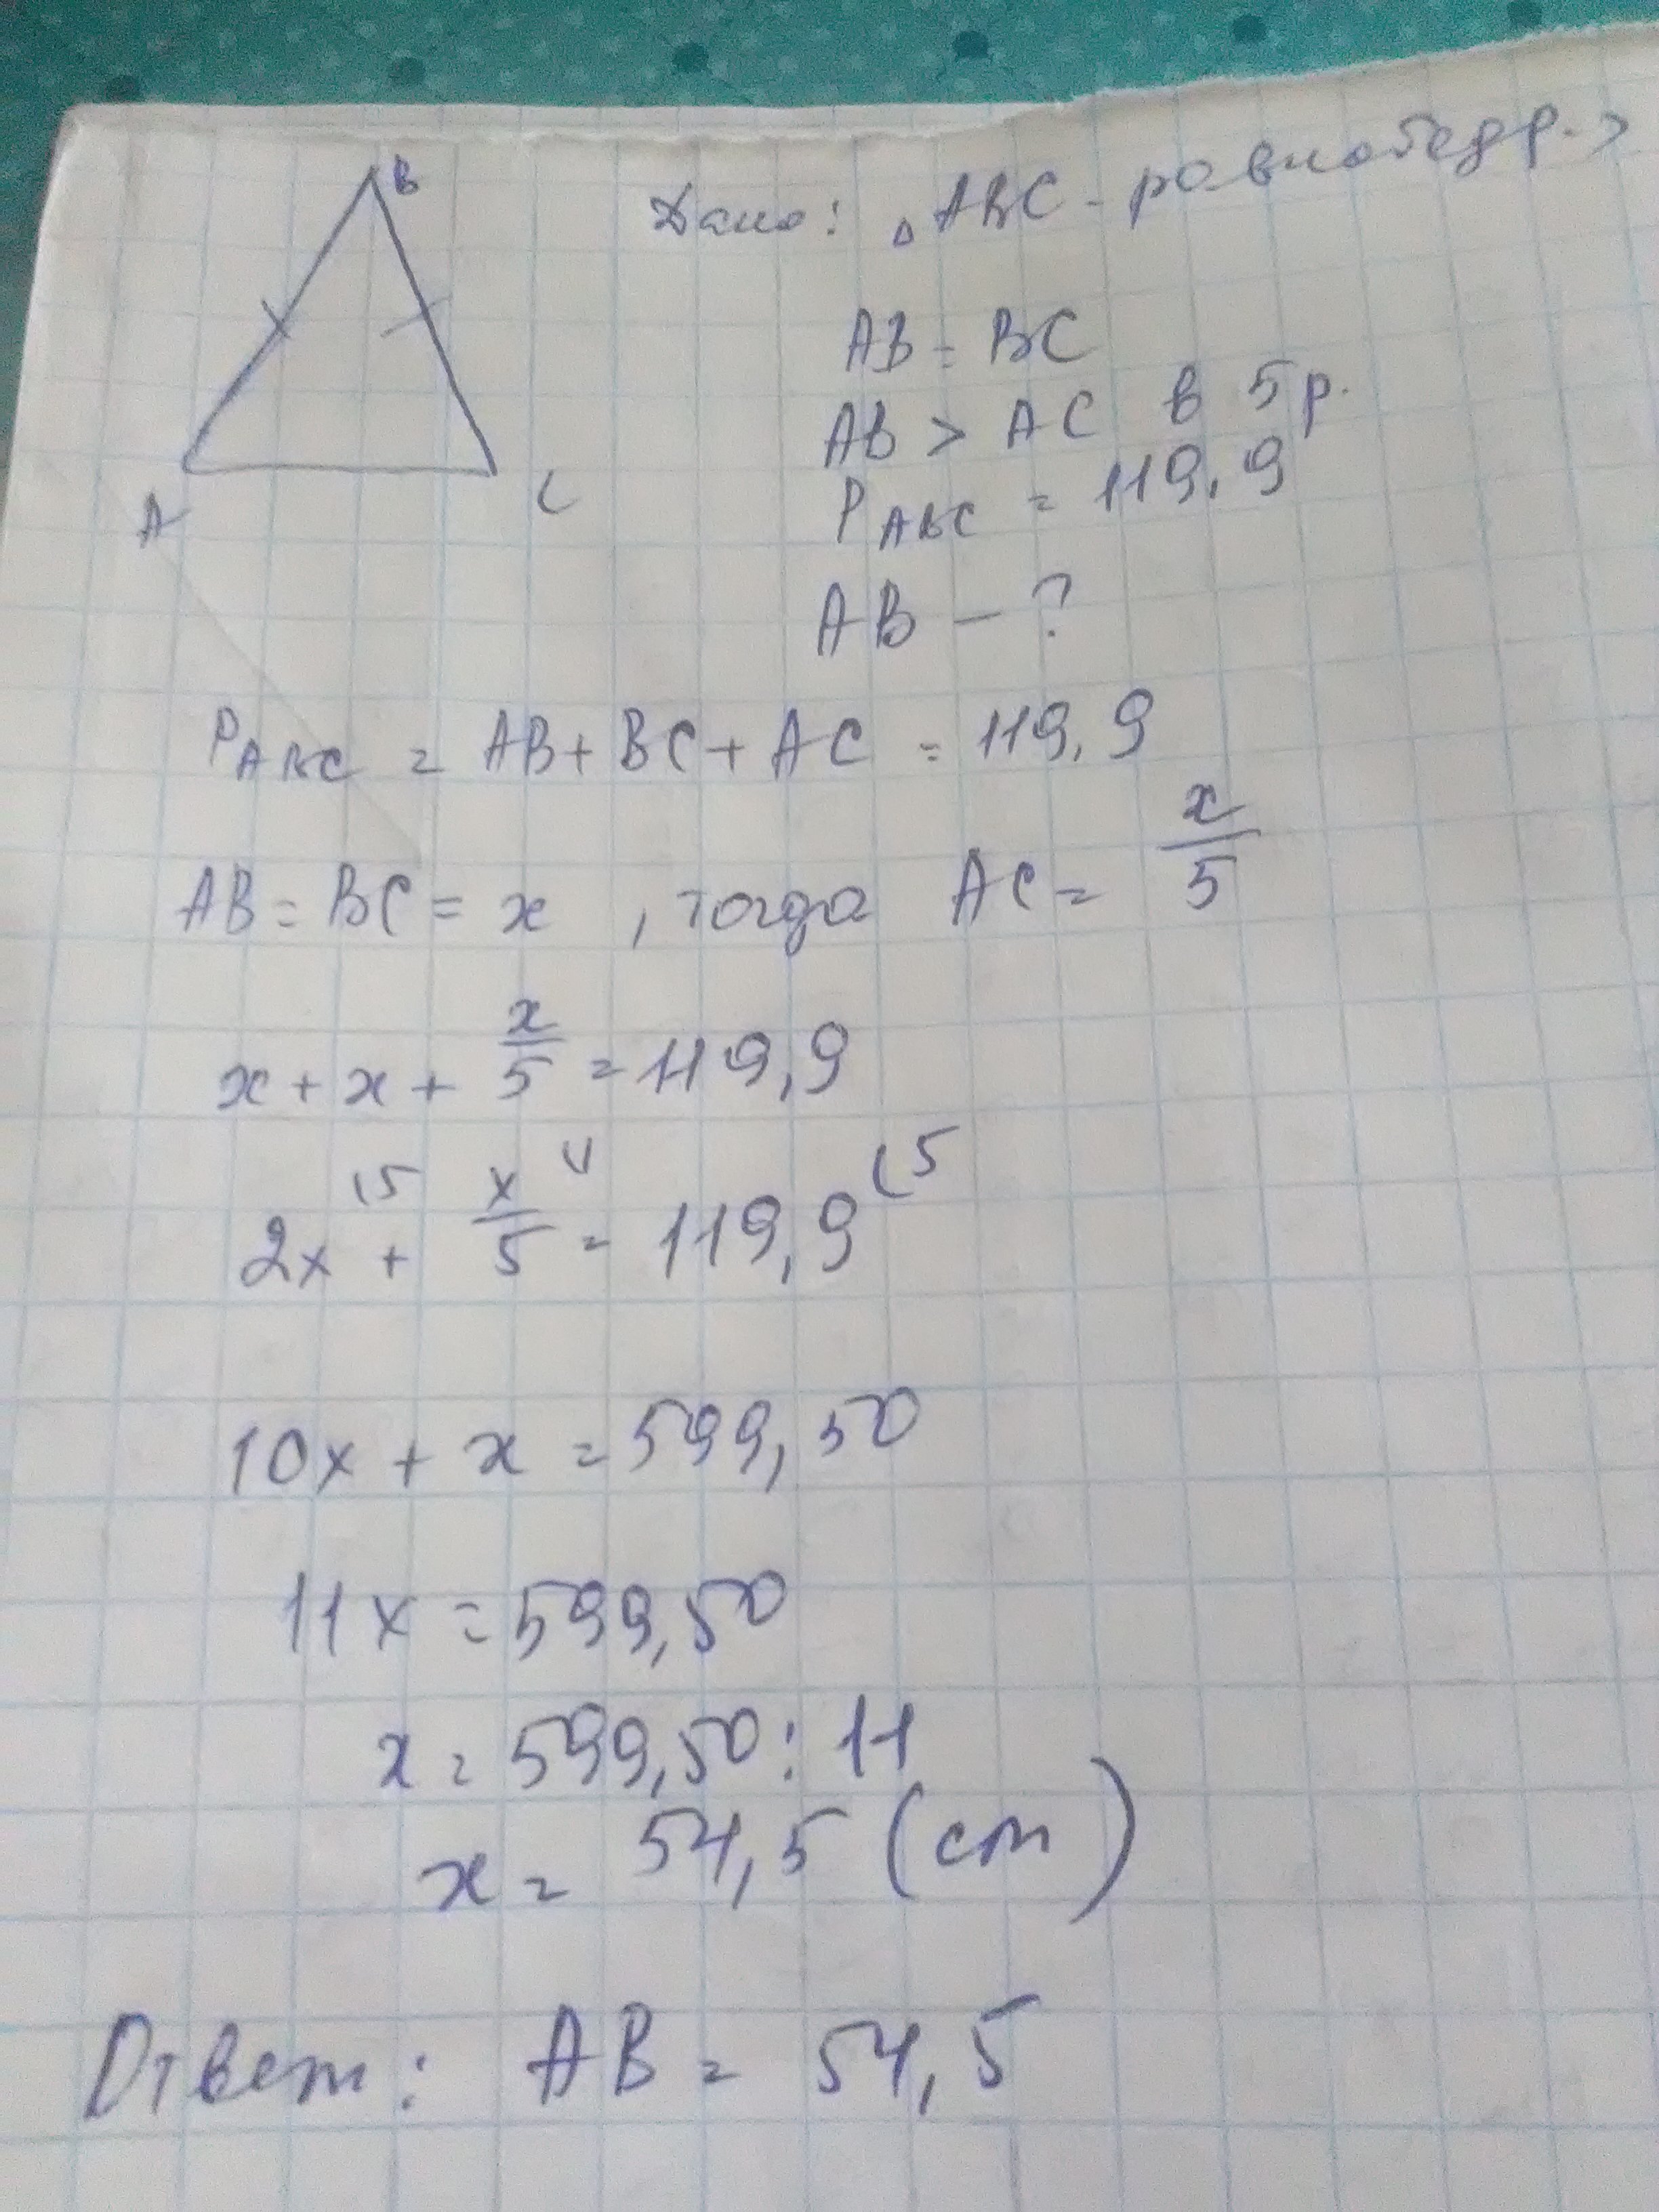 B
Дано: △ABC - равнобедр.>
AB = BC
AB > AC в 5 р.
A C
P ABC = 119,9
AB - ?
P ABC = AB + BC + AC = 119,9
AB = BC = x , тогда AC = x/5
x + x + x/5 = 119,9
2x (5 + x/5 (1 = 119,9 (5
10x + x = 599,50
11x = 599,50
x = 599,50 : 11
x = 54,5 (cm)
Ответ: AB = 54,5